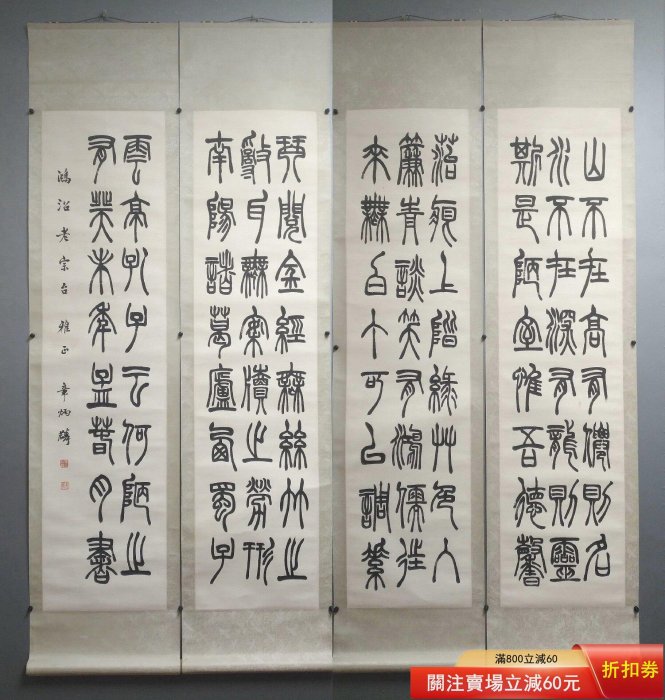 山不在高有僊則名
水不在深有龍則靈
斯是陋室惟吾德馨
菭痕上階綠艸色入
簾青談笑有鴻儒往
來無白丁可以調素
琴閱金經無絲竹之
亂耳無案牘之勞形
南陽諸葛廬西蜀子
雲亭孔子云何陋之
有癸未年孟春月書
鴻沼老宗台 雅正 章炳麟
滿800立減60
關注賣場立減60元
折扣券